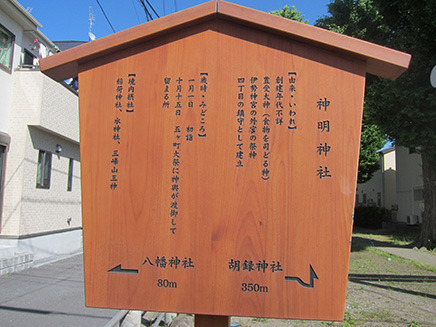 神明神社
【由来・いわれ】
創建年代不詳
豊受大神（食物を司どる神）
伊勢神宮の外宮の祭神
四丁目の鎮守として建立
【歳時・みどころ】
一月一日　初詣
十月十五日　五ヶ町大祭に神輿が渡御して
留まる所
【境内摂社】
稲荷神社、水神社、三峰山三神
八幡神社
80m
胡録神社
350m